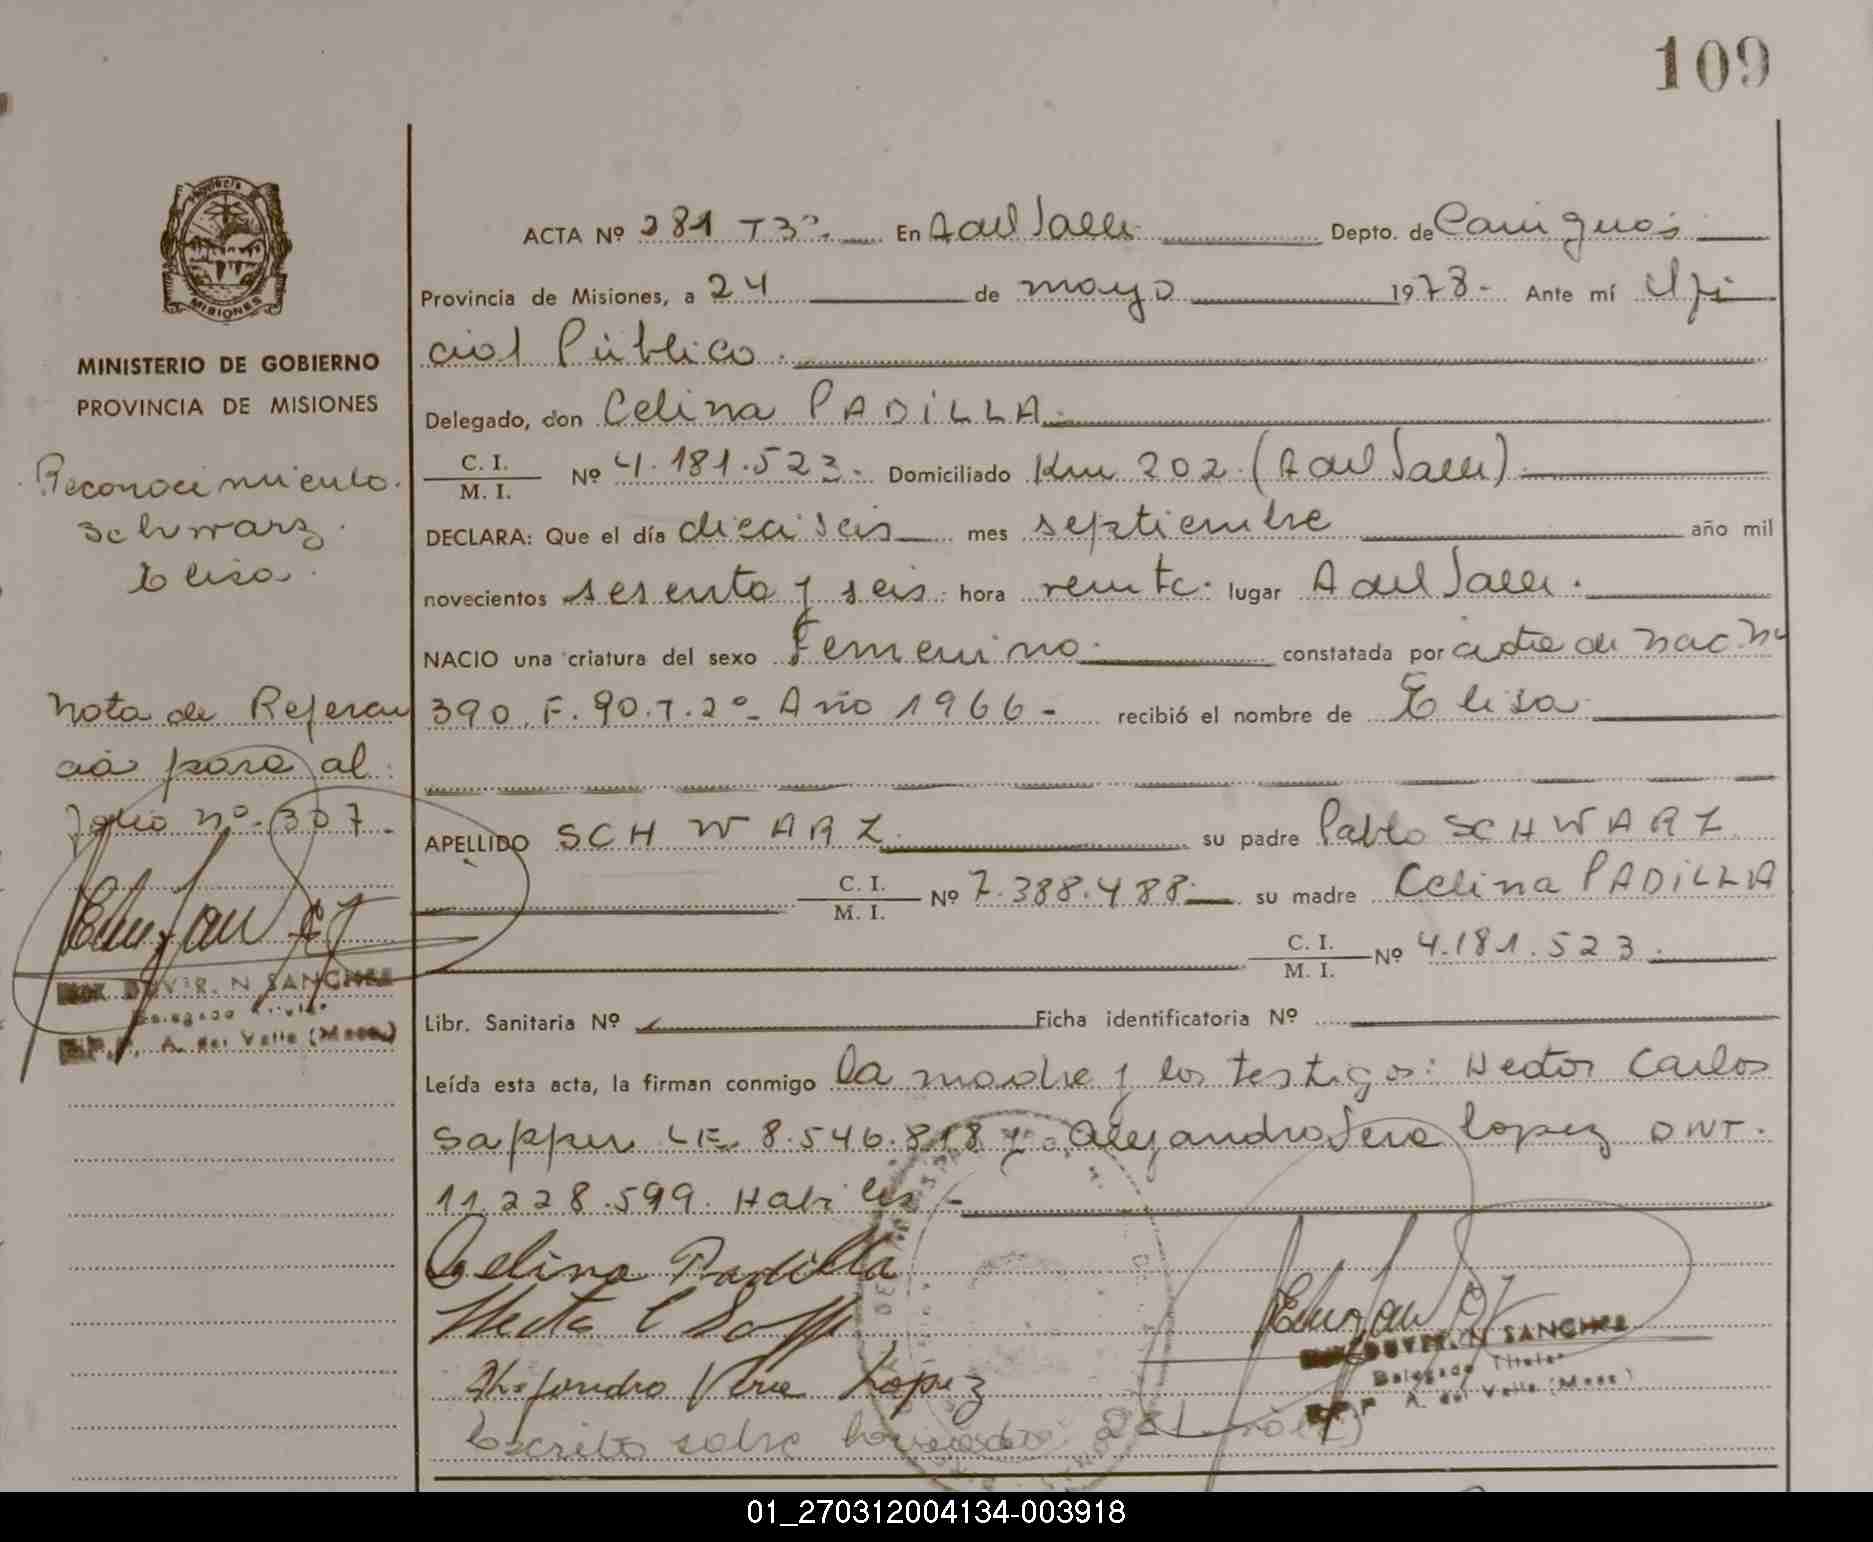 109
Provincia
MISIONES
MINISTERIO DE GOBIERNO
PROVINCIA DE MISIONES
Reconocimiento.
Schwarz.
Elisa.
Nota de Referen
cia para al
folio nº 307.
N SANCHEZ
Delegado Titular
A. del Valle (Mnes.)
ACTA Nº 281 T3º. En A del Valle Depto. de Cainguás
Provincia de Misiones, a 24 de mayo 1978- Ante mí Ofi
cial Público.
Delegado, don Celina PADILLA.
C. I.
M. I. Nº 4.181.523.- Domiciliado Km 202. (A del Valle).
DECLARA: Que el día dieciseis mes septiembre año mil
novecientos sesenta y seis. hora veinte. lugar A del Valle.
NACIO una criatura del sexo Femenino. constatada por acta de nac. Nº
390. F. 90. T. 2º- Año 1966- recibió el nombre de Elisa
APELLIDO SCHWARZ. su padre Pablo SCHWARZ.
C. I.
M. I. Nº 7.388.488- su madre Celina PADILLA
C. I.
M. I. Nº 4.181.523.
Libr. Sanitaria Nº Ficha identificatoria Nº
Leída esta acta, la firman conmigo la madre y los testigos: Hector Carlos
LE 8.546.818 y Alejandro Vera Lopez DNI.
11.228.599. Habiles-
Celina Padilla
Hector C
Alejandro Vera López
N SANCHEZ
Delegado Titular
A. del Valle (Mnes.)
Escrito sobre borrado 281
01_270312004134-003918